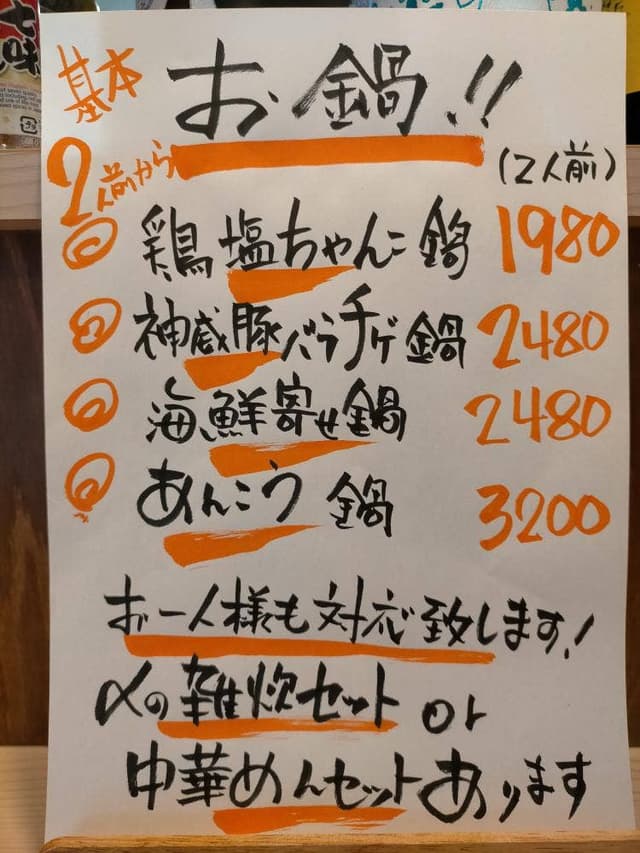 七味
基本
2人前から
お鍋!!
(2人前)
鶏塩ちゃんこ鍋 1980
神威豚バラチゲ鍋 2480
海鮮寄せ鍋 2480
あんこう鍋 3200
お一人様も対応致します!
〆の雑炊セット or
中華めんセットあります